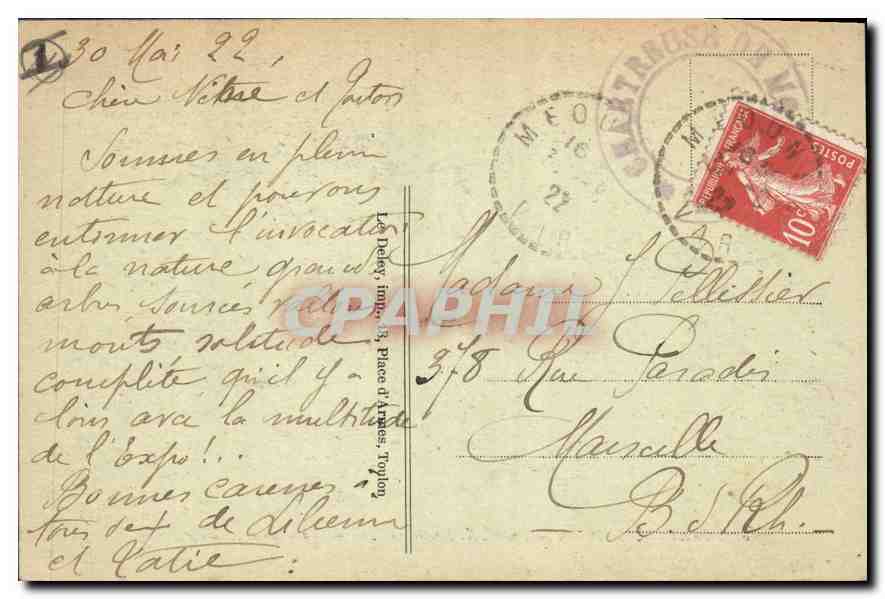 1
30 Mai 22,
Chère et
Sommes en plein
nature et pouvons
entonner l'invocation
à la nature grands
arbres sources
monts solitude
complète qu'il y a
loin avec la multitude
de l'Expo!..
Bonnes caresses
tous deux de
et Katie.
L. Deley, imp., 18, Place d'Armes, Toulon
CHARTREUSE DE MO
MEOU
16
22
VAR
MEOUN
VAR
RÉPUBLIQUE FRANÇAISE
POSTES
10c
Madame J. Pellissier
378 Rue Paradis
Marseille
B. d Rh.
CPAPHIL